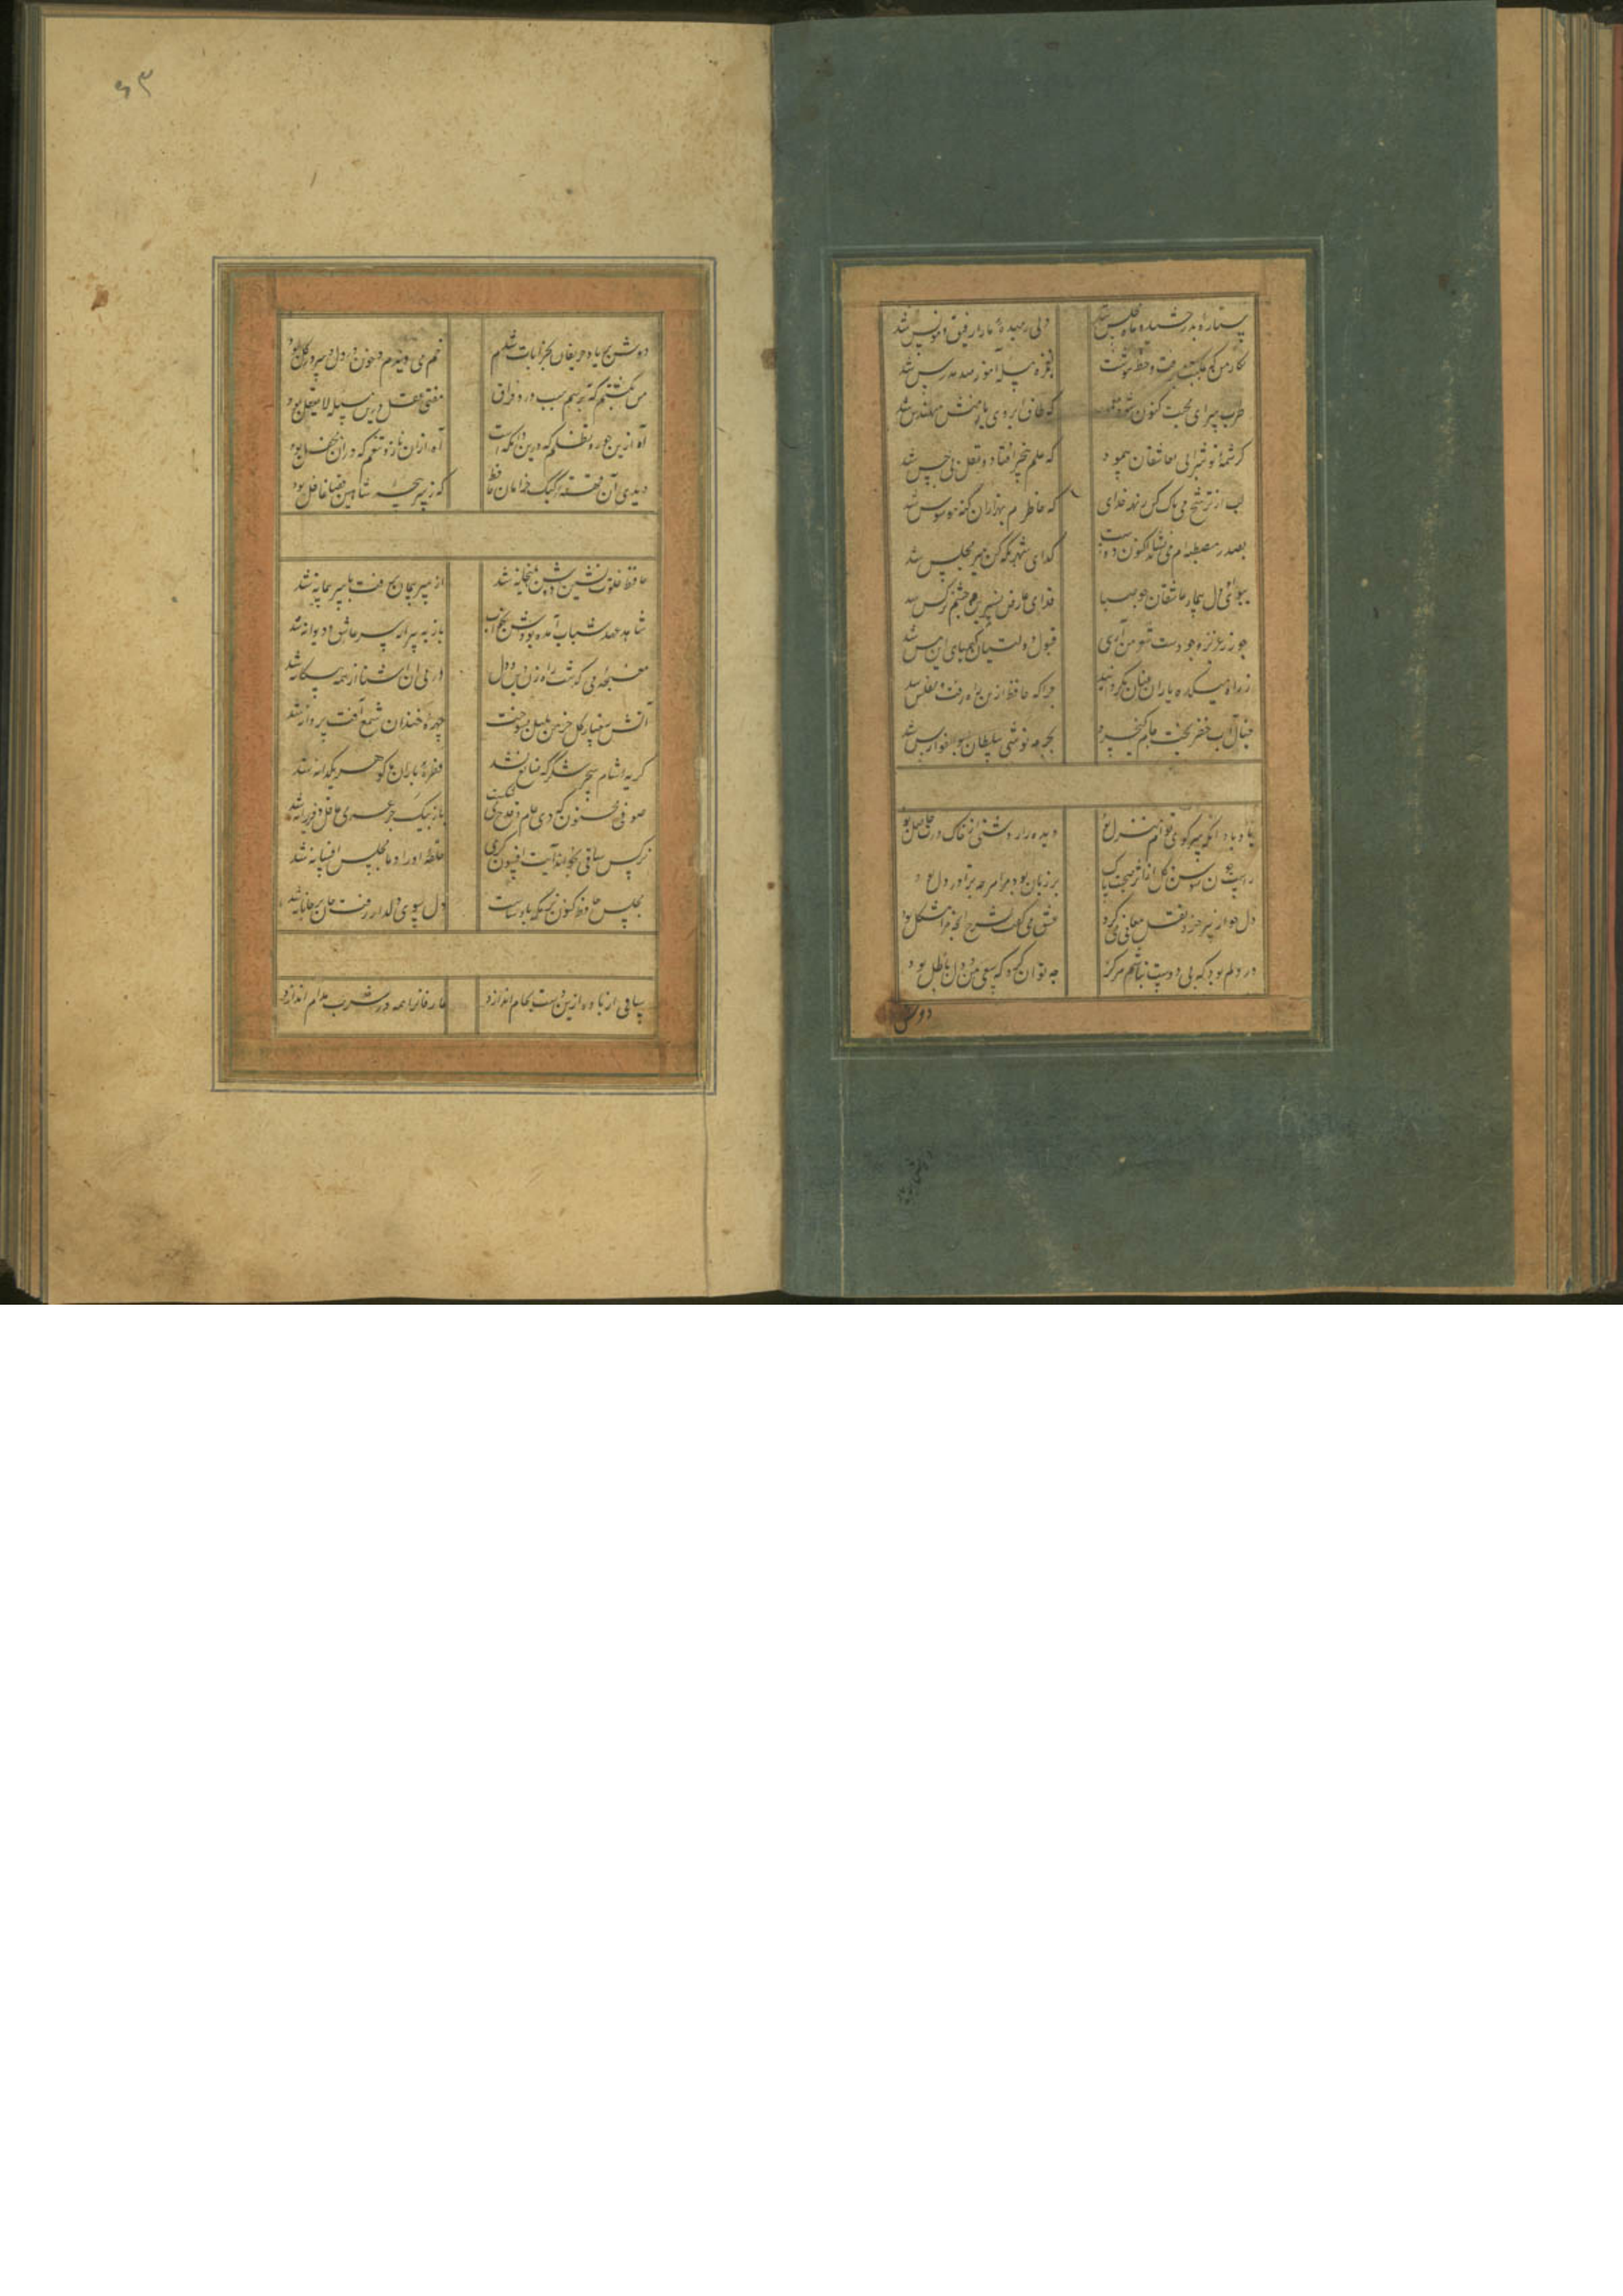 ستاره بدرخشید و ماه مجلس شد دل رمیدهٔ ما را رفیق و مونس شد
نگار من که بمکتب نرفت و خط ننوشت بغمزه مسله آموز صد مدرس شد
طرب سرای محبت کنون شود معمور که طاق ابروی یار منش مهندس شد
کرشمهٔ تو شرابی بعاشقان پیمود که علم بیخبر افتاد و عقل بی حس شد
لب از ترشح می پاک کن ز بهر خدای که خاطرم بهزاران گنه موسوس شد
بصدر مصطبه ام می نشاند اکنون دوست گدای شهر نگه کن که میر مجلس شد
ببوی او دل بیمار عاشقان چو صبا فدای عارض نسرین و چشم نرگس شد
چو زر عزیز وجودست شعر من آری قبول دولتیان کیمیای این مس شد
ز راه میکده یاران عنان بگردانید چرا که حافظ ازین راه رفت و مفلس شد
خیال آب خضر بست و جام کیخسرو بجرعه نوشی سلطان ابوالفوارس شد
یاد باد آنکه سر کوی توام منزل بود دیده را روشنی از خاک درت حاصل بود
راست چون سوسن و گل از اثر صحبت پاک بر زبان بود مرا هر چه ترا در دل بود
دل چو از پیر خرد نقل معانی می کرد عشق می گفت بشرح آنچه برو مشکل بود
در دلم بود که بی دوست نباشم هرگز چه توان کرد که سعی من و دل باطل بود
دوش
۶۳
دوش بر یاد حریفان بخرابات شدم خم می دیدم و خون در دل و سر در گل بود
بس بگشتم که بپرسم سبب درد فراق مفتی عقل درین مسله لا یعقل بود
آه ازین جور و تظلم که درین دامگه است آه از آن ناز و تنعم که در آن محفل بود
دیدی آن قهقههٔ کبک خرامان حافظ که ز سرپنجهٔ شاهین قضا غافل بود
حافظ خلوت نشین دوش بمیخانه شد از سر پیمان برفت با سر پیمانه شد
شاهد عهد شباب آمده بودش بخواب باز به پیرانه سر عاشق و دیوانه شد
مغبچهٔ می گذشت راه زن دین و دل در پی آن آشنا از همه بیگانه شد
آتش رخسار گل خرمن بلبل بسوخت چهرهٔ خندان شمع آفت پروانه شد
گریهٔ شام و سحر شکر که ضایع نشد قطرهٔ باران ما گوهر یکدانه شد
صوفی مجنون که دی جام و قدح می شکست باز بیک جرعه می عاقل و فرزانه شد
نرگس ساقی بخواند آیت افسونگری حلقهٔ اوراد ما مجلس افسانه شد
مجلس حافظ کنون بزمگه پادشاست دل سوی دلدار رفت جان بر جانانه شد
ساقی ار باده ازین دست بجام اندازد عارفانرا همه در شرب مدام اندازد